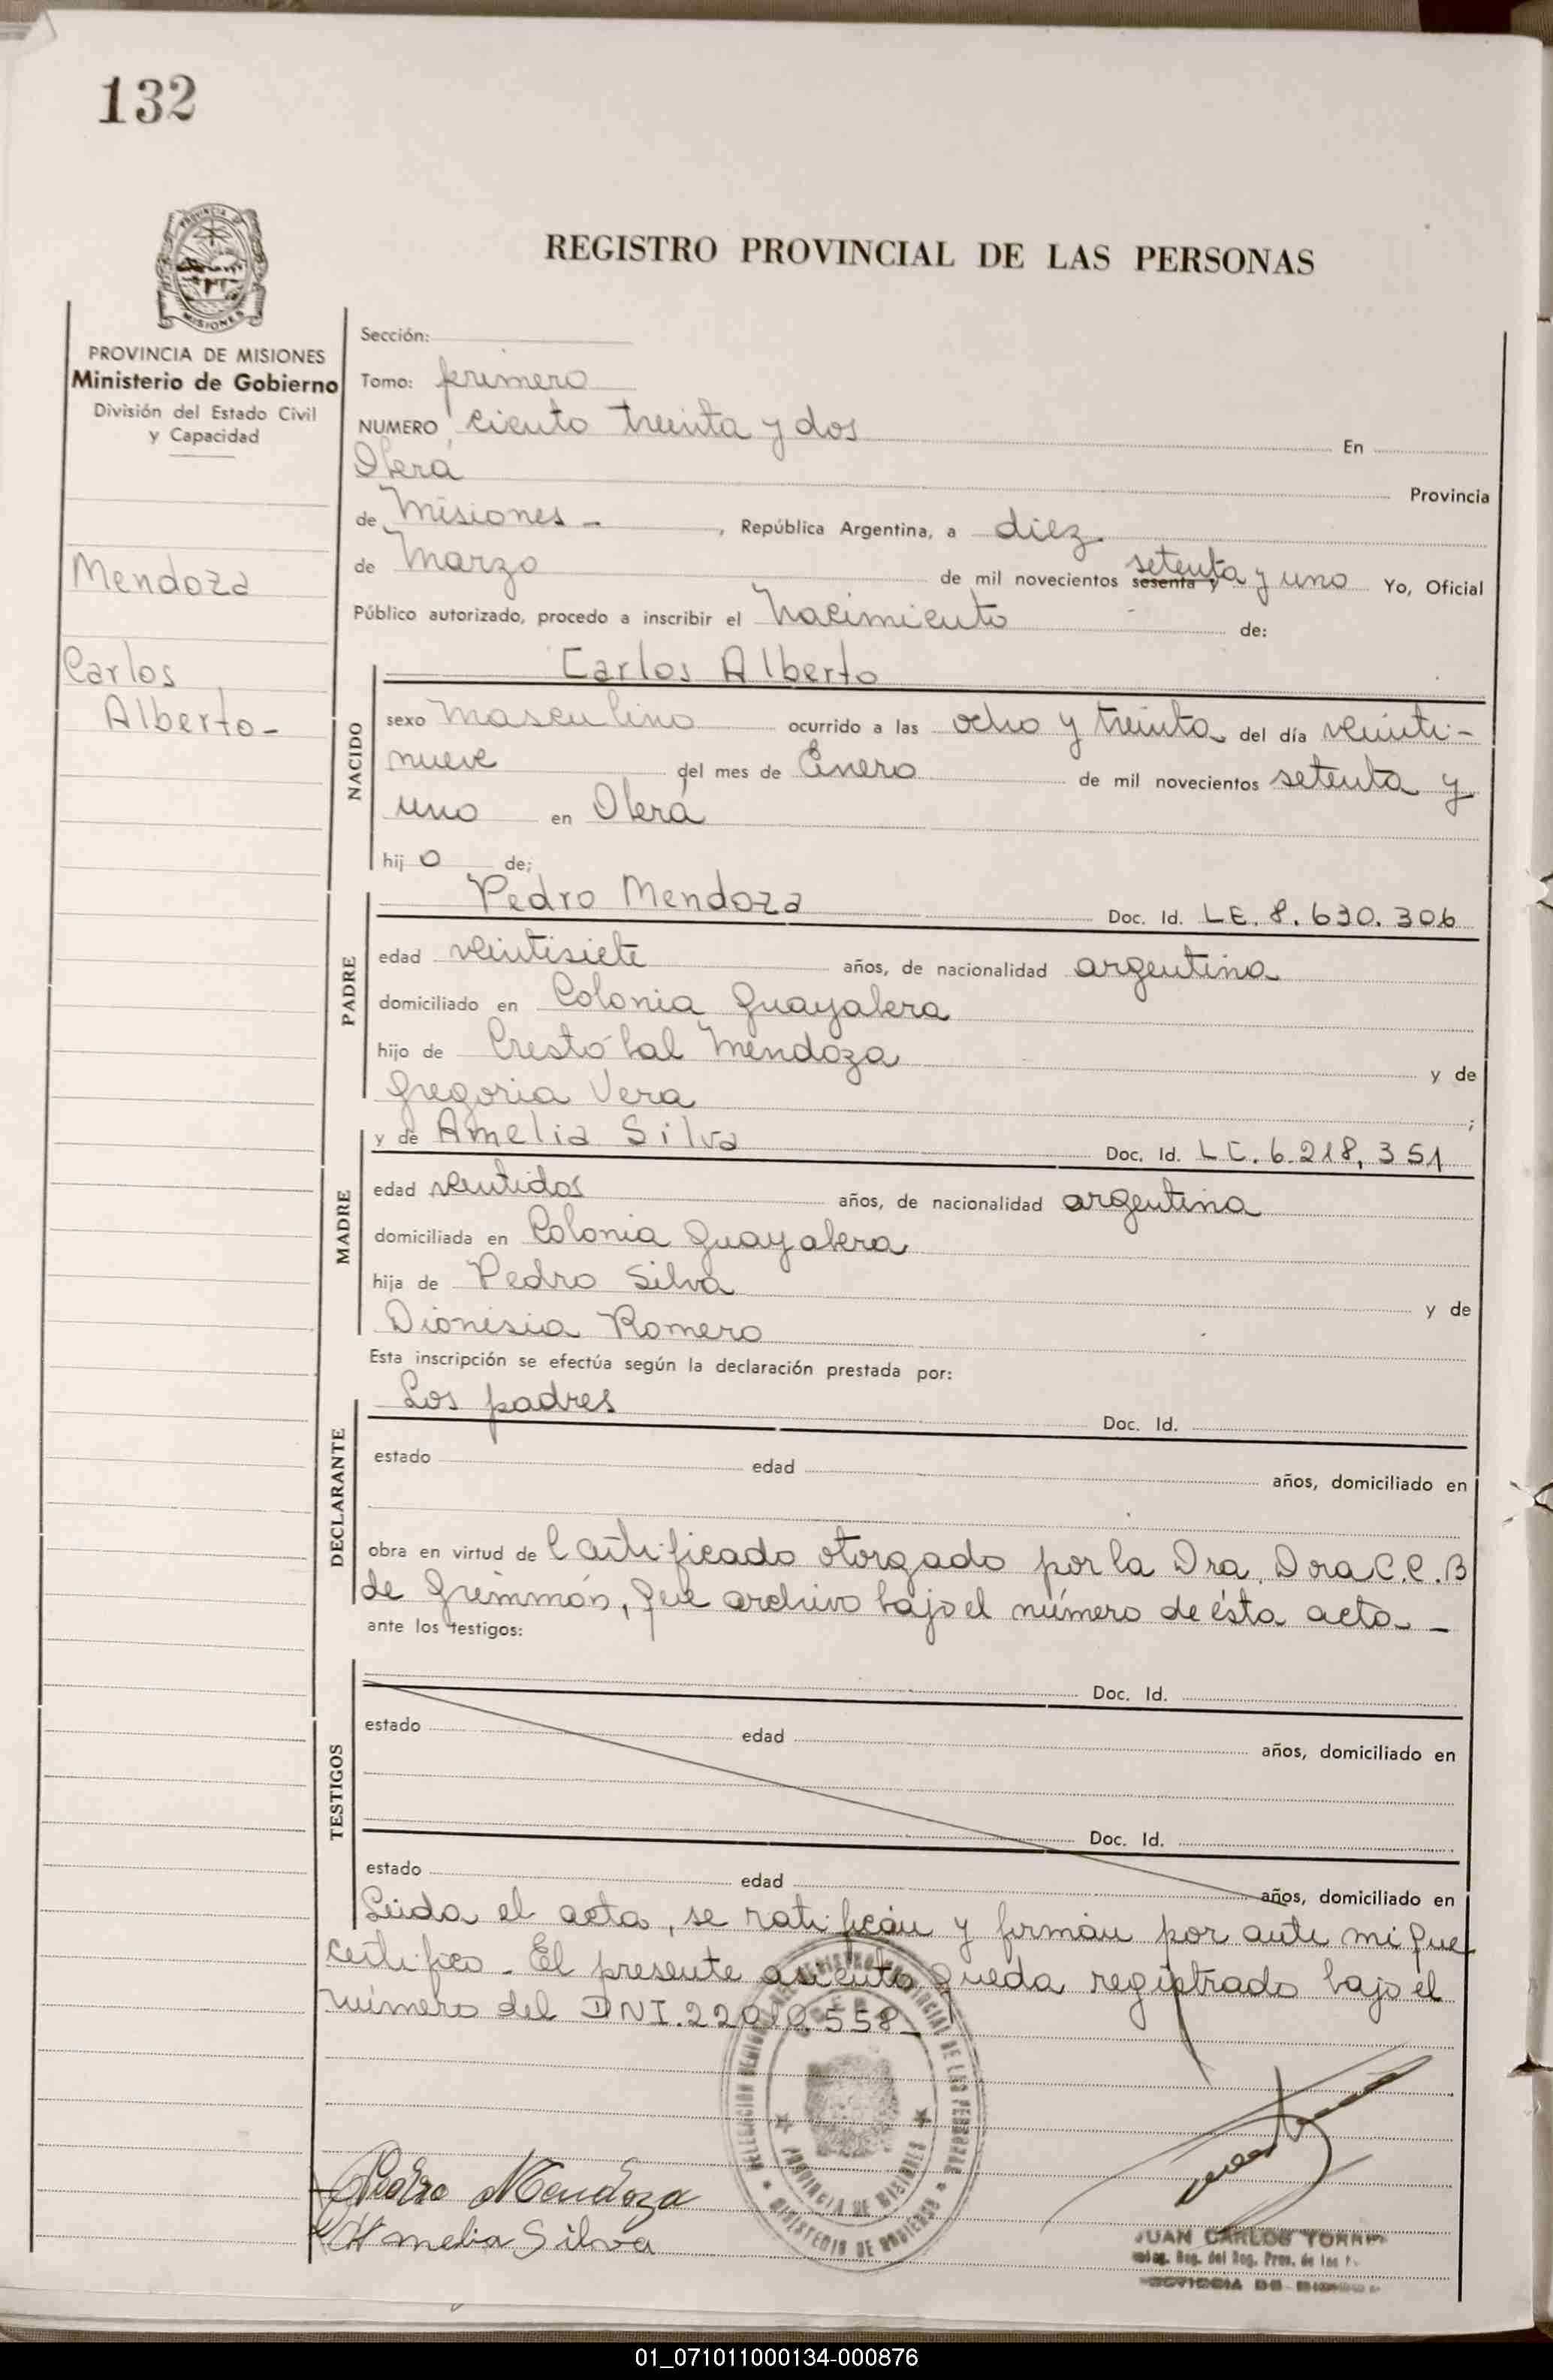 132
REGISTRO PROVINCIAL DE LAS PERSONAS
PROVINCIA DE MISIONES
Ministerio de Gobierno
División del Estado Civil
y Capacidad
Mendoza
Carlos
Alberto-
Sección:
Tomo: primero
NUMERO ciento treinta y dos En
Oberá Provincia
de Misiones - , República Argentina, a diez
de Marzo de mil novecientos sesenta y setenta y uno Yo, Oficial
Público autorizado, procedo a inscribir el Nacimiento de:
NACIDO
Carlos Alberto
sexo masculino ocurrido a las ocho y treinta del día veinti-
nueve del mes de Enero de mil novecientos setenta y
uno en Oberá
hij o de;
PADRE
Pedro Mendoza Doc. Id. LE. 8.630.306
edad veintisiete años, de nacionalidad argentina
domiciliado en Colonia Guayabera
hijo de Crestóbal Mendoza y de
Gregoria Vera ;
MADRE
y de Amelia Silva Doc. Id. LC. 6.218.351
edad ventidos años, de nacionalidad argentina
domiciliada en Colonia Guayabera
hija de Pedro Silva y de
Dionisia Romero
Esta inscripción se efectúa según la declaración prestada por:
DECLARANTE
Los padres Doc. Id.
estado edad años, domiciliado en
obra en virtud de Certificado otorgado por la Dra. Dora C.C.B
de Grimmón, que archivo bajo el número de ésta acta. -
ante los testigos:
TESTIGOS
Doc. Id.
estado edad años, domiciliado en
Doc. Id.
estado edad años, domiciliado en
Leida el acta, se ratifican y firman por ante mi que
certifico - El presente asiento queda registrado bajo el
número del DNI. 22.010.558-
PROVINCIA DE MISIONES
MINISTERIO DE GOBIERNO
Pedro Mendoza
Amelia Silva
JUAN CARLOS
01_071011000134-000876